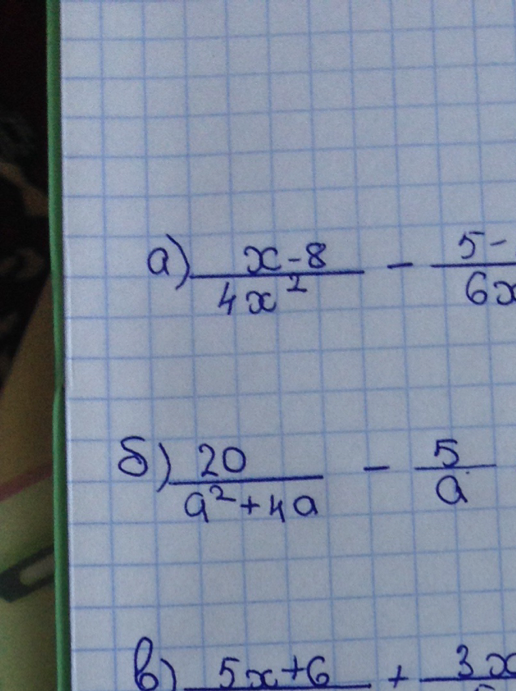 а) x-8 / 4x² - 5- / 6x
б) 20 / a²+4a - 5 / a
в) 5x+6 + 3x